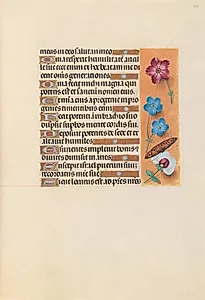 meus in deo salutari meo
Quia respexit humilitatem ancil
le sue ecce enim ex hoc beatam me di
cent omnes generationes
Quia fecit michi magna qui
potens est et sanctum nomen eius
Et misericordia eius a progenie in pro
genies timentibus eum
Fecit potentiam in brachio suo
dispersit superbos mente cordis sui
Deposuit potentes de sede et ex
altavit humiles
Esurientes implevit bonis et
divites dimisit inanes
Suscepit israel puerum suum
recordatus misericordie sue
Sicut locutus est ad patres nros